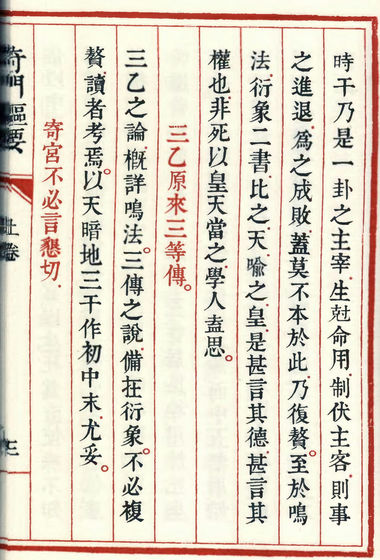 時干乃是一卦之主宰生尅命用制伏主客則事
之進退為之成敗蓋莫不本於此乃復贅至於鳴
法衍象二書比之天喻之皇是甚言其德甚言其
權也非死以皇天當之學人盍思
三乙原來三等傳
三乙之論概詳鳴法三傳之說備在衍象不必複
贅讀者考焉以天暗地三干作初中末尤妥
寄宮不必言懇切
奇門樞要
上卷
三